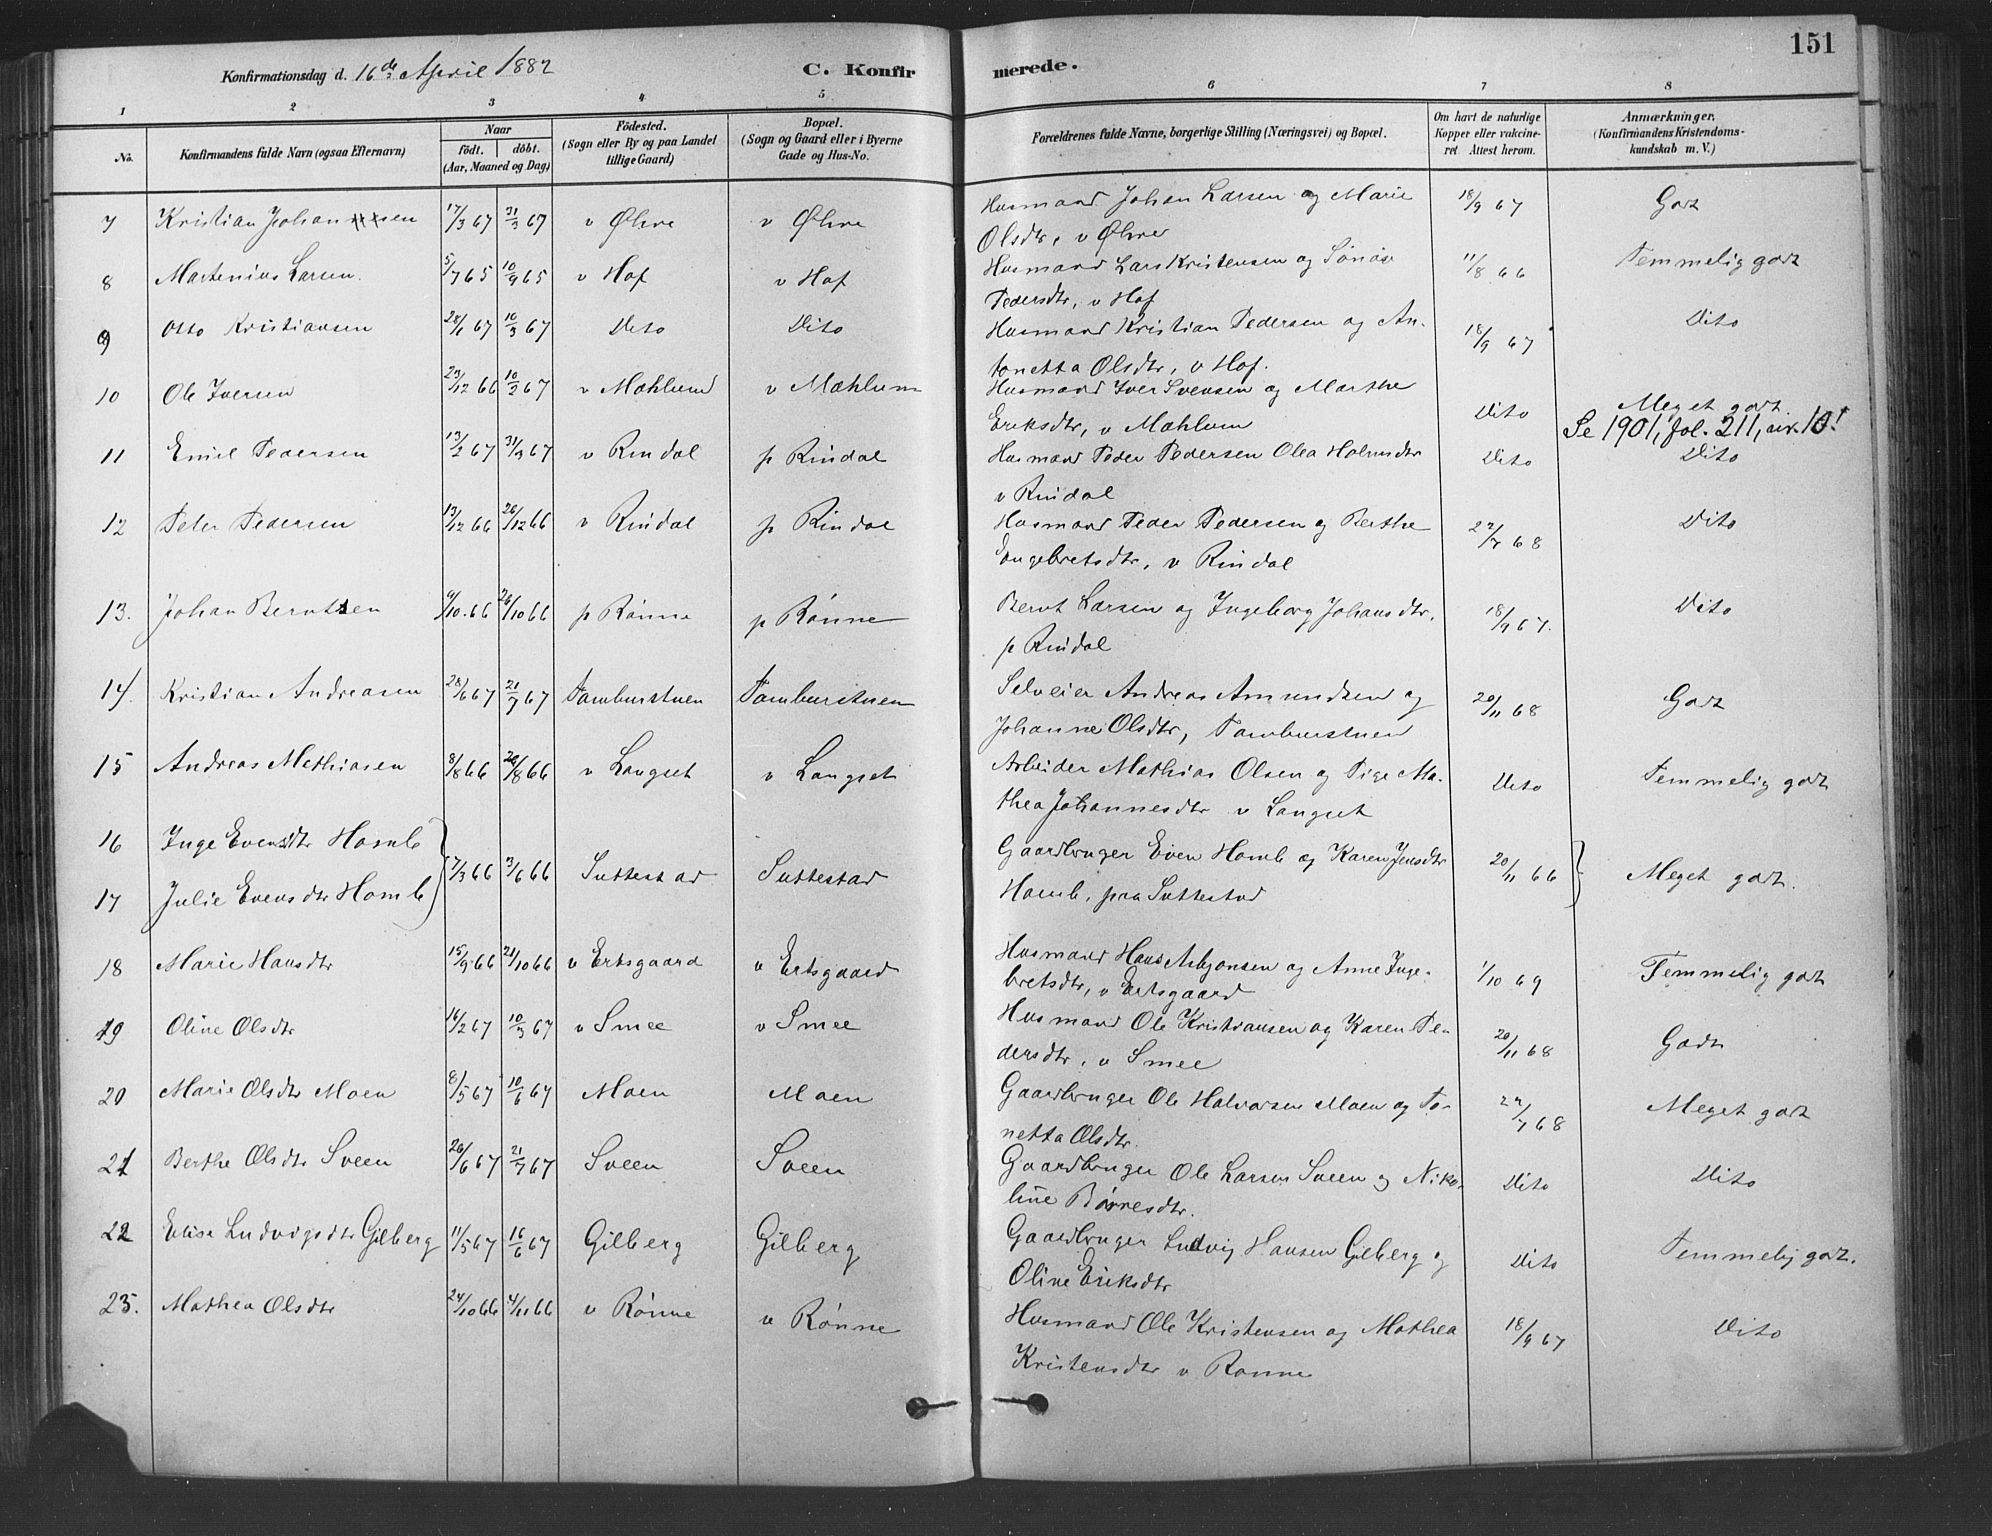 151
Konfirmationsdag d. 16de April 1882 C. Konfirmerede.
1 2 3 4 5 6 7 8
No. Konfirmandens fulde Navn (ogsaa Efternavn) Naar födt. döbt. (Aar, Maaned og Dag) Födested. (Sogn eller By og paa Landet tillige Gaard) Bopæl. (Sogn og Gaard eller i Byerne Gade og Hus-No. Forældrenes fulde Navne, borgerlige Stilling (Næringsvei) og Bopæl. Om havt de naturlige Kopper eller vakcineret Attest herom. Anmærkninger. (Konfirmandens Kristendomskundskab m. V.)
7 Kristian Johansen 17/3 67 31/3 67 v Øhre v Øhre Husmand Johan Larsen og Marie 18/9 67 Godt
Olsdtr, v Øhre
8 Martenius Larsen 5/7 65 10/9 65 v Hof v Hof Husmand Lars Kristensen og Sønøv 11/8 66 Temmelig godt
Pedersdtr, v Hof
9 Otto Kristiansen 28/1 67 10/3 67 Dito Dito Husmand Kristian Pedersen og An- 18/9 67 Dito
tonetta Olsdtr, v Hof.
10 Ole Iversen 23/12 66 10/2 67 v Mæhlum v Mæhlum Husmand Iver Svensen og Marthe Dito Meget godt.
Eriksdtr, v Mæhlum Se 1901, fol. 211, nr. 10!
11 Emil Pedersen 13/2 67 31/3 67 v Rindal p Rindal Husmand Peder Pedersen Olea Holmsdtr Dito Dito
v Rindal
12 Peter Pedersen 13/12 66 26/12 66 v Rindal p Rindal Husmand Peder Pedersen og Berthe 22/7 68 Dito
Engebretsdtr, v Rindal
13. Johan Berntsen 9/10 66 26/10 66 p Rønne p Rønne Bernt Larsen og Ingeborg Johansdtr, 18/9 67. Dito
p Rindal
14. Kristian Andreasen 28/6 67 21/7 67 Tamburstuen Tamburstuen Selveier Andreas Amundsen og 20/11 68 Godt
Johanne Olsdtr, Tamburstuen
15 Andreas Mathiasen 8/8 66 26/8 66 v Langset v Langset Arbeider Mathias Olsen og Pige Ma- Dito Temmelig godt
thea Johannesdtr v Langset
16 Inge Evensdtr Homb 17/3 66 3/6 66 Suttestad Suttestad Gaardbruger Even Homb og Karen Jensdtr 20/11 66 Meget godt.
17 Julie Evensdtr Homb Homb, paa Suttestad
18 Marie Hansdtr 15/9 66 21/10 66 v Ertsgaard v Ertsgaard Husmand Hans Asbjønsen og Anne Inge- 1/10 69 Temmelig godt
bretsdtr, v Ertsgaard
19 Oline Olsdtr 16/2 67 10/3 67 v Smee v Smee Husmand Ole Kristiansen og Karen Pe- 20/11 68 Godt
dersdtr, v Smee
20 Marie Olsdtr Moen 8/5 67 10/6 67 Moen Moen Gaardbruger Ole Halvorsen Moen og To- 22/7 68 Meget godt
netta Olsdtr.
21 Berthe Olsdtr Sveen 26/6 67 21/7 67 Sveen Sveen Gaardbruger Ole Larsen Sveen og Niko- Dito Dito
line Børresdtr.
22 Elise Ludvigsdtr Gilberg 11/5 67 16/6 67 Gilberg Gilberg Gaardbruger Ludvig Hansen Gilberg og Dito Temmelig godt.
Oline Eriksdtr
23. Mathea Olsdtr 24/10 66 4/11 66 v Rønne v Rønne Husmand Ole Kristensen og Mathea 18/9 67 Dito
Kristensdtr v Rønne